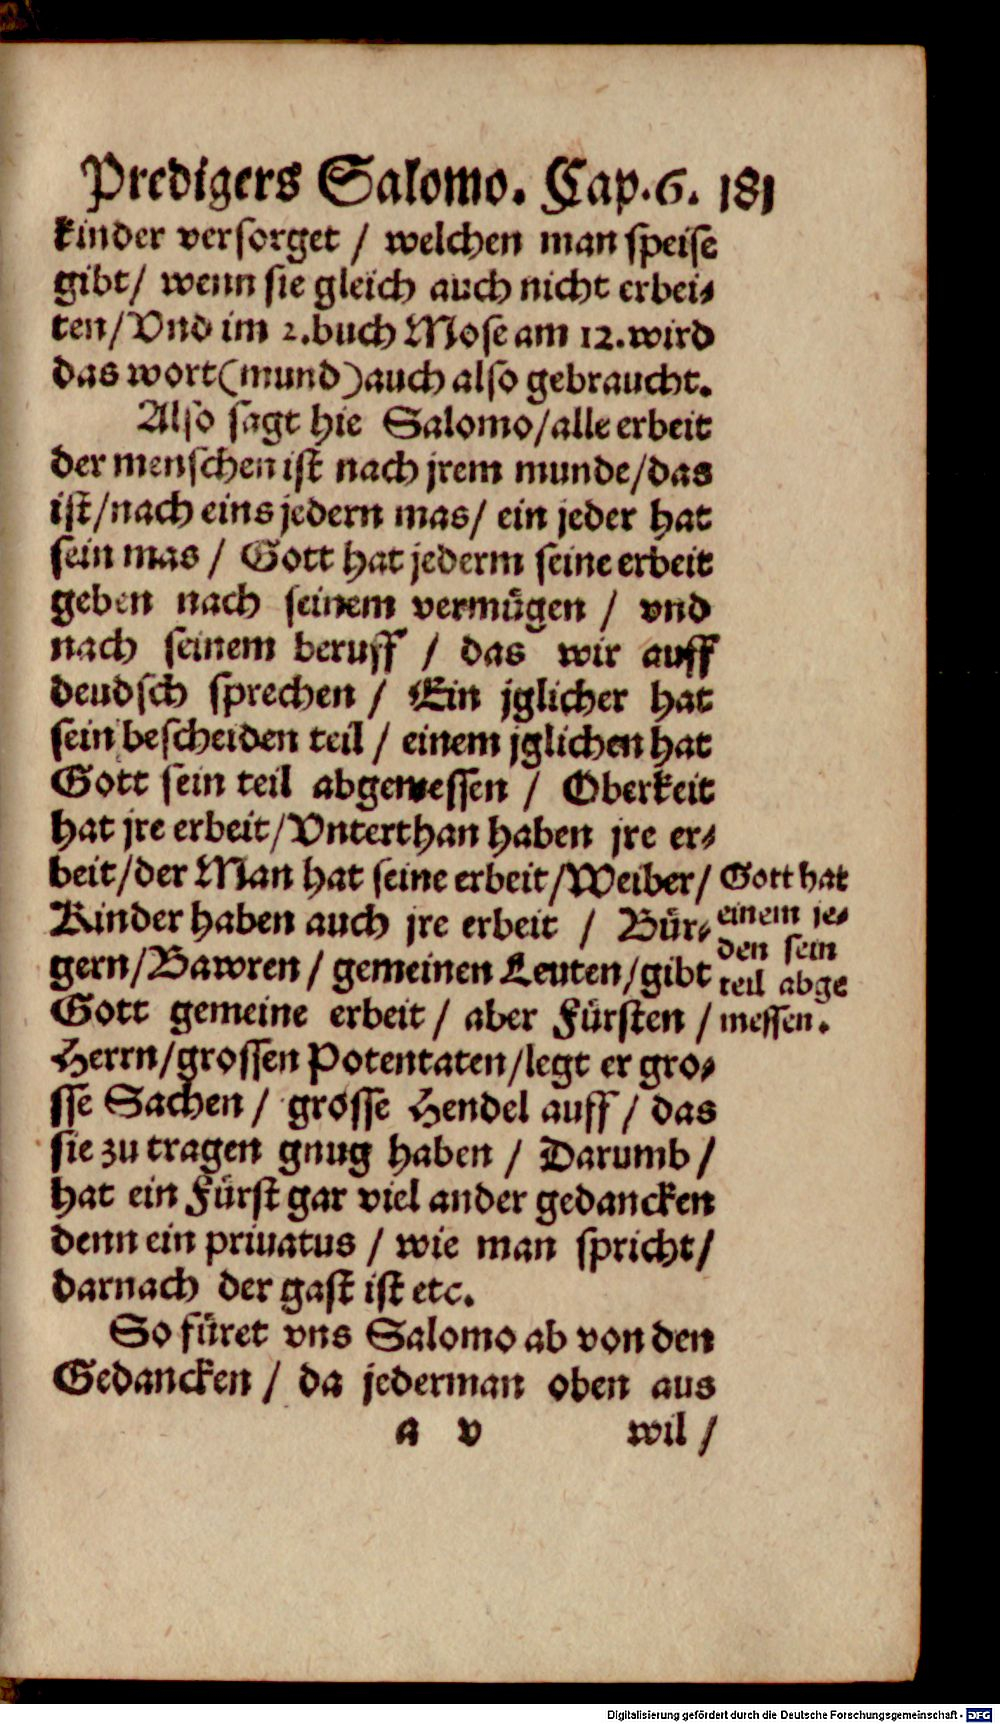 Predigers Salomo. Cap.6. 181
kinder versorget / welchen man speise
gibt/ wenn sie gleich auch nicht erbei⸗
ten/Vnd im 2.buch Mose am 12.wird
das wort(mund)auch also gebraucht.
Also sagt hie Salomo/alle erbeit
der menschen ist nach jrem munde/das
ist/nach eins jedern mas/ ein jeder hat
sein mas / Gott hat jederm seine erbeit
geben nach seinem vermügen / vnd
nach seinem beruff / das wir auff
deudsch sprechen / Ein jglicher hat
sein bescheiden teil / einem jglichen hat
Gott sein teil abgemessen / Oberkeit
hat jre erbeit/Vnterthan haben jre er⸗
beit/der Man hat seine erbeit/Weiber/
Kinder haben auch jre erbeit / Bür⸗
gern/Bawren / gemeinen Leuten/gibt
Gott gemeine erbeit / aber Fürsten /
Herrn/grossen Potentaten/legt er gro⸗
sse Sachen / grosse Hendel auff / das
sie zu tragen gnug haben / Darumb /
hat ein Fürst gar viel ander gedancken
denn ein priuatus / wie man spricht/
darnach der gast ist etc.
So füret vns Salomo ab von den
Gedancken / da jederman oben aus
a v wil /
Gott hat
einem je⸗
den sein
teil abge
messen.
Digitalisierung gefördert durch die Deutsche Forschungsgemeinschaft - DFG